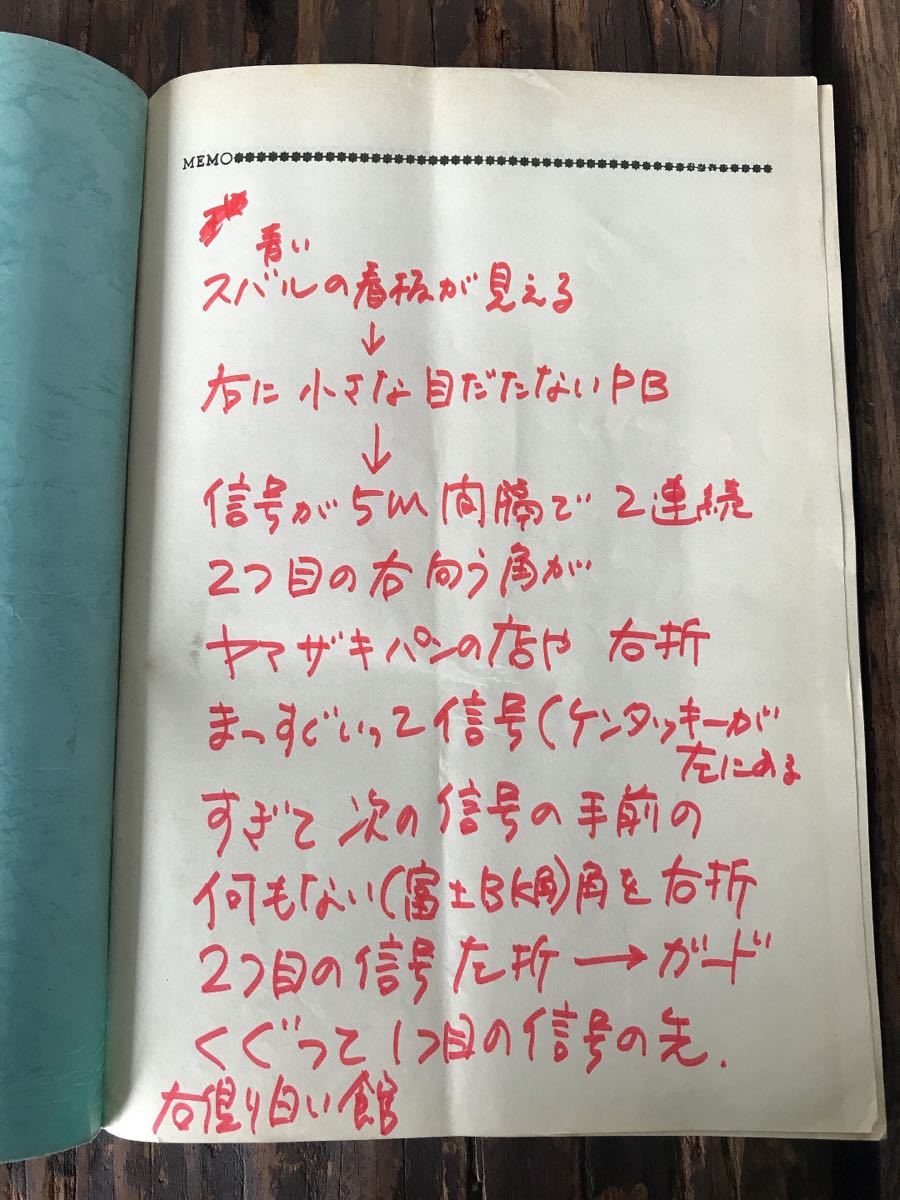 MEMO
青い
スバルの看板が見える
↓
右に小さな目だたないPB
↓
信号が5m間隔で2連続
2つ目の右向う角が
ヤマザキパンの店や 右折
まっすぐいって信号(ケンタッキーが
左にある
すぎて次の信号の手前の
何もない(富士BK角)角を右折
2つ目の信号左折→ガード
くぐって1つ目の信号の先.
右側り白い館